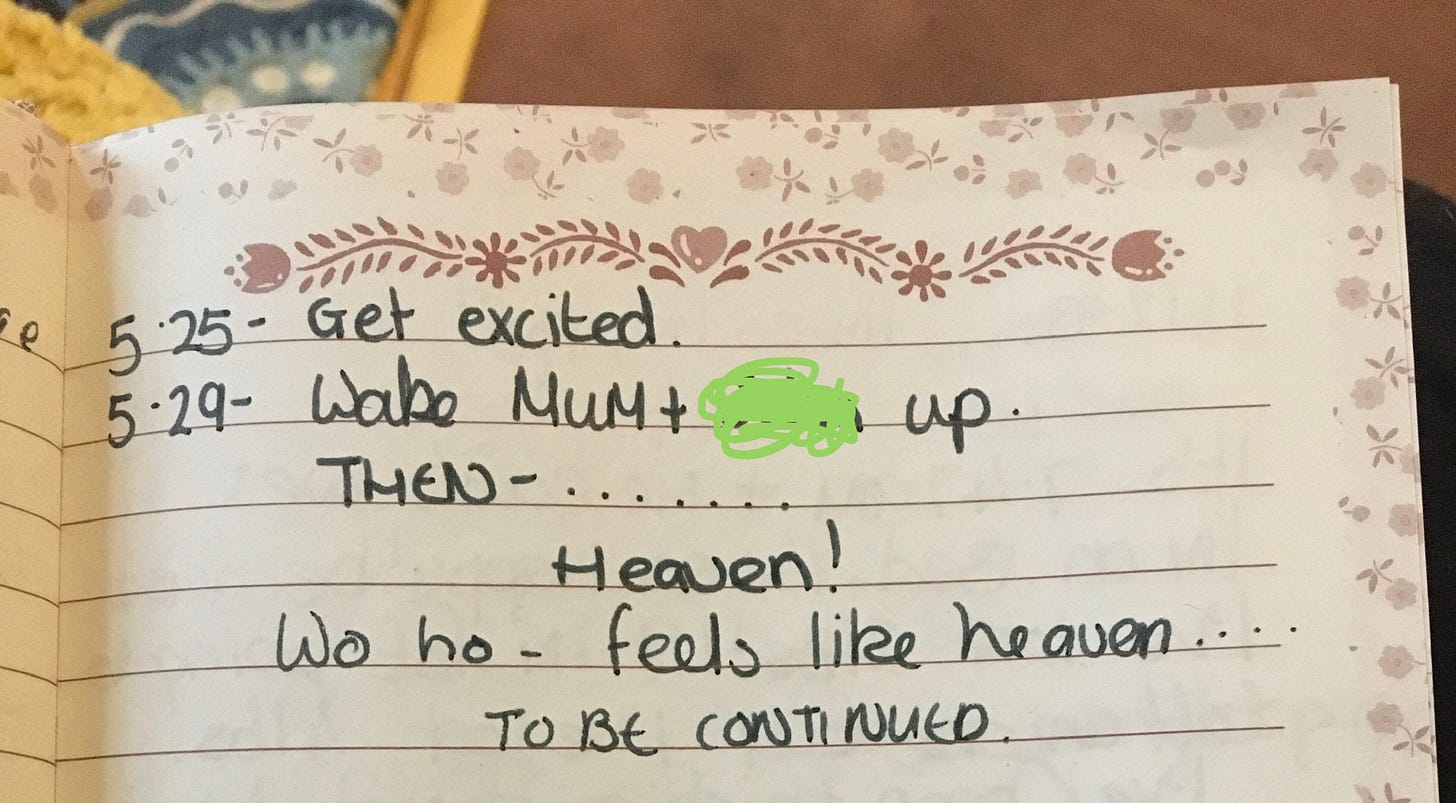 5.25- Get excited.
5.29- Wake MUM + up.
THEN- ........
Heaven!
Wo ho - feels like heaven....
TO BE CONTINUED.